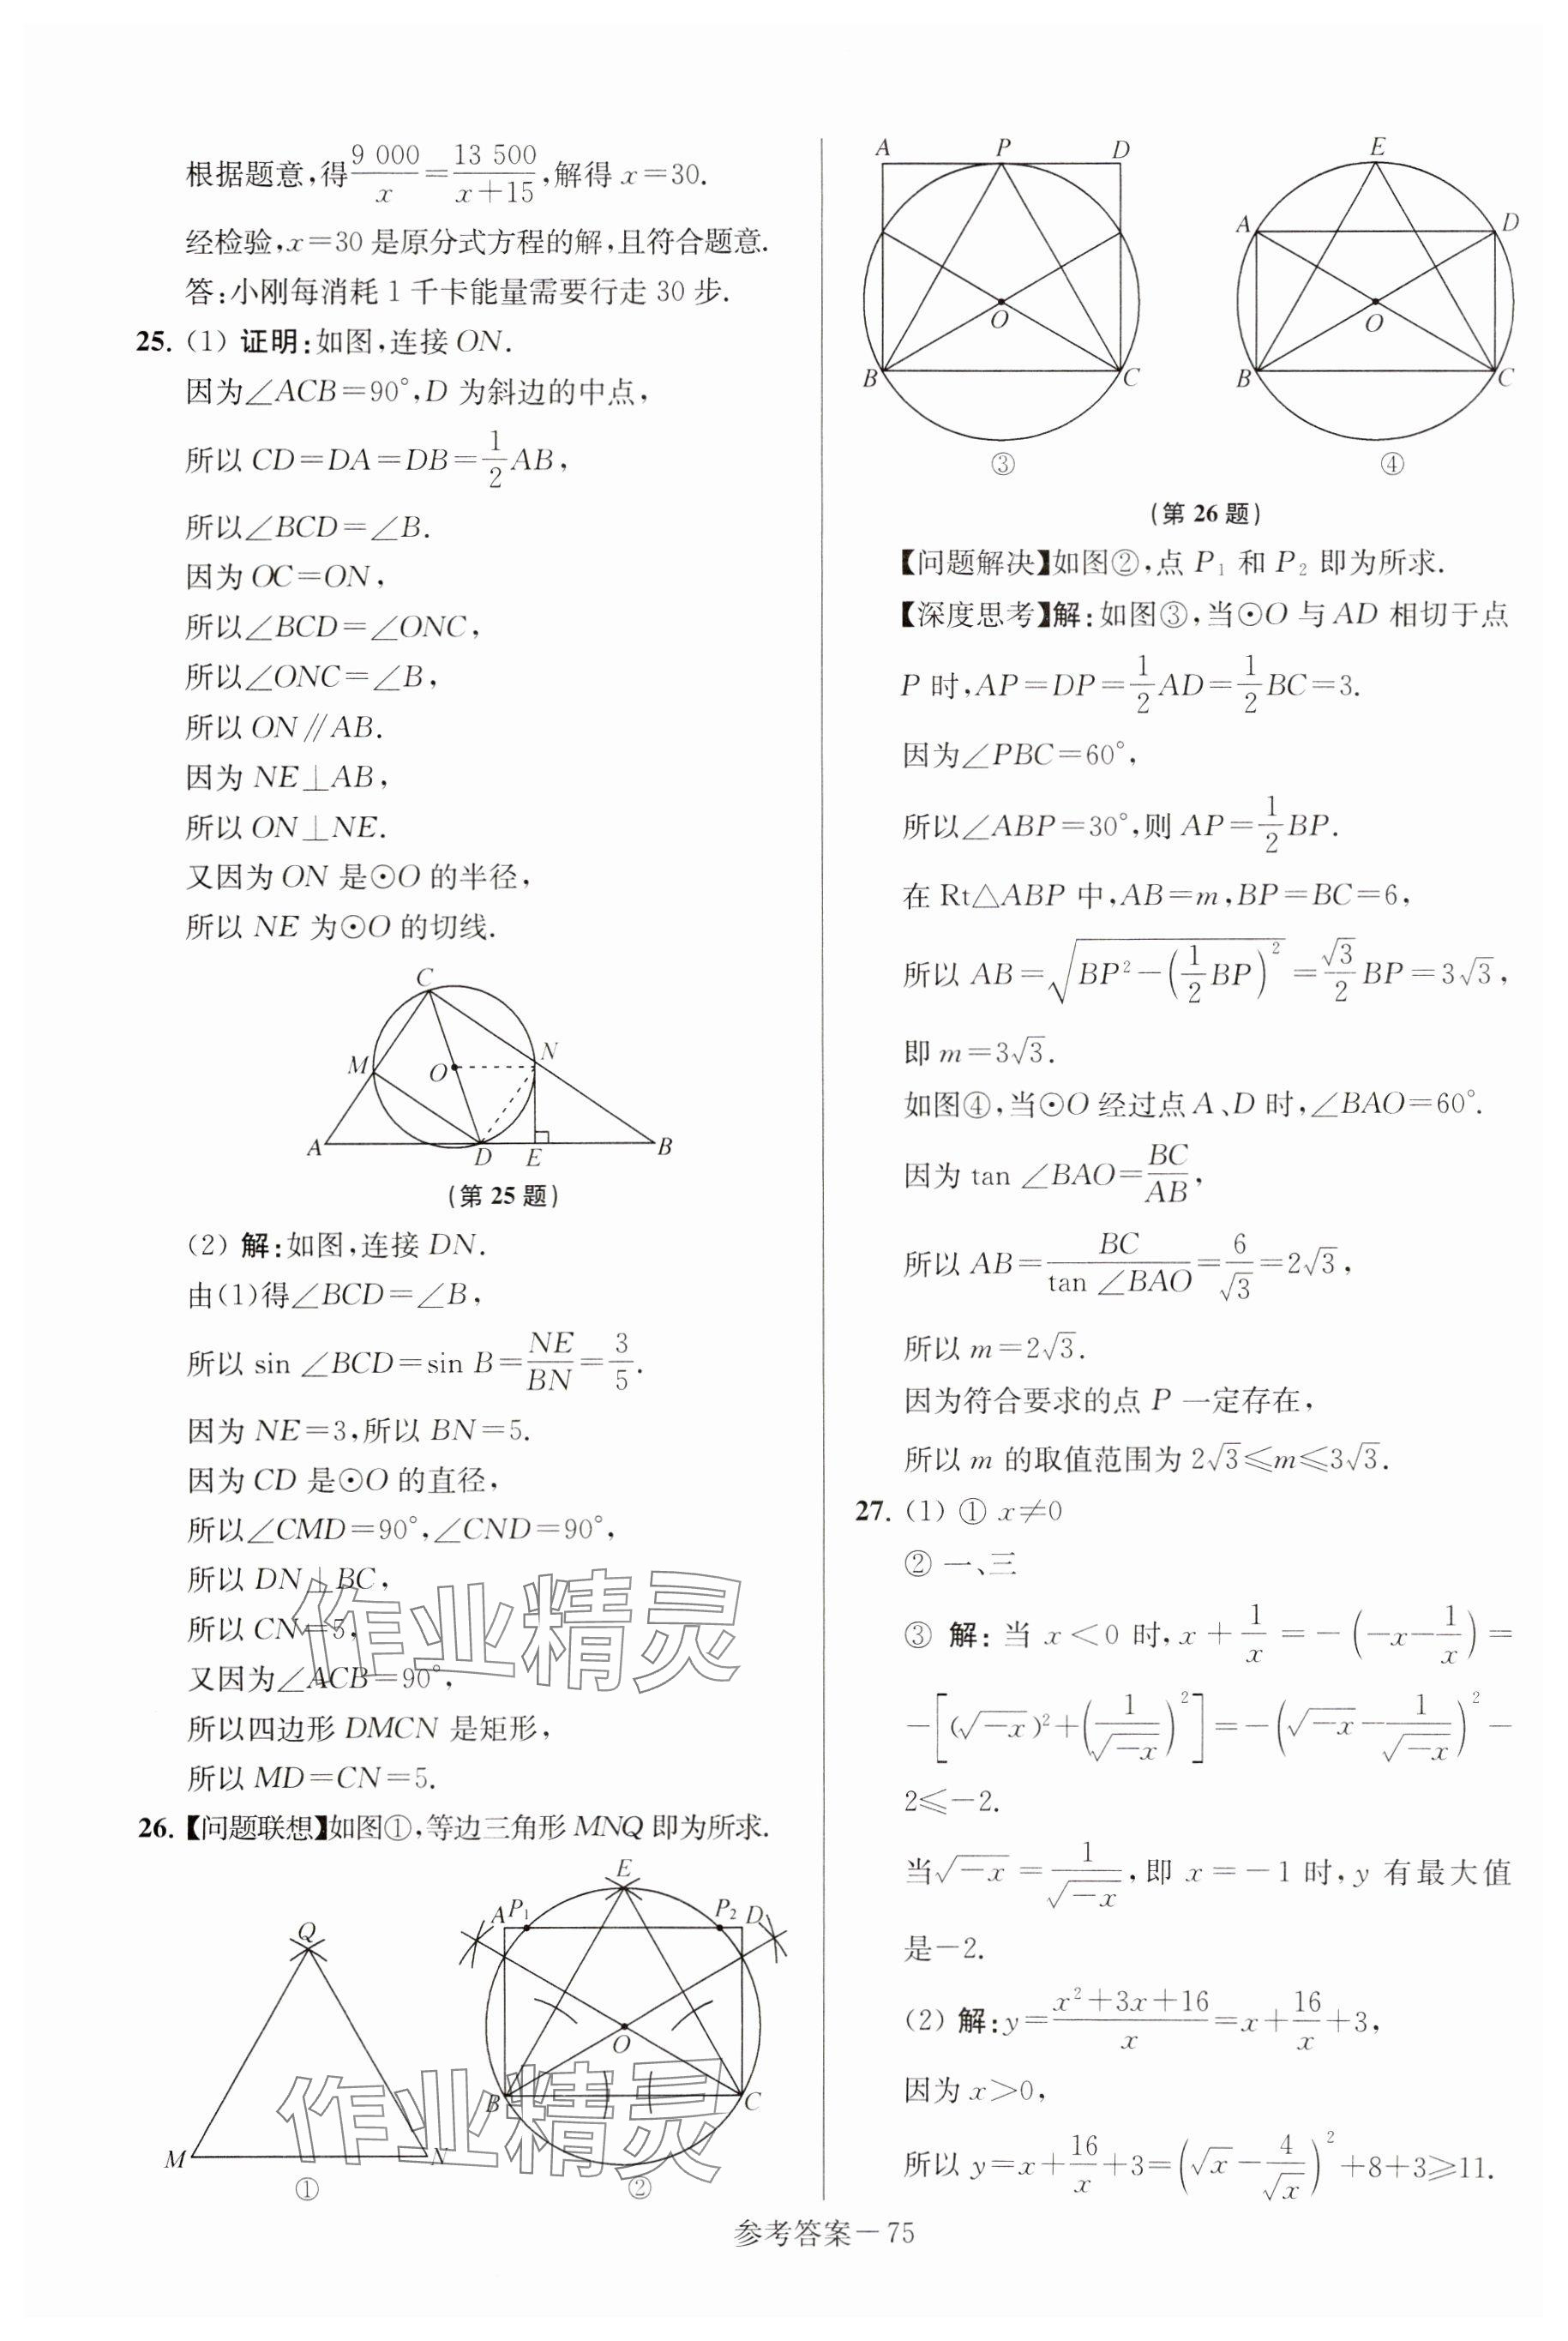 根据题意,得9 000/x=13 500/(x+15),解得 x=30.
经检验,x=30 是原分式方程的解,且符合题意.
答:小刚每消耗 1 千卡能量需要行走 30 步.
25. (1) 证明:如图,连接 ON.
因为∠ACB=90°,D 为斜边的中点,
所以 CD=DA=DB=1/2 AB,
所以∠BCD=∠B.
因为 OC=ON,
所以∠BCD=∠ONC,
所以∠ONC=∠B,
所以 ON∥AB.
因为 NE⊥AB,
所以 ON⊥NE.
又因为 ON 是⊙O 的半径,
所以 NE 为⊙O 的切线.
C
M
O
N
A
D
E
B
(第 25 题)
(2) 解:如图,连接 DN.
由(1)得∠BCD=∠B,
所以 sin ∠BCD=sin B=NE/BN=3/5.
因为 NE=3,所以 BN=5.
因为 CD 是⊙O 的直径,
所以∠CMD=90°,∠CND=90°,
所以 DN⊥BC,
所以 CN=5,
又因为∠ACB=90°,
所以四边形 DMCN 是矩形,
所以 MD=CN=5.
作业精灵
26.【问题联想】如图①,等边三角形 MNQ 即为所求.
Q
M
N
①
E
A P₁
P₂ D
O
B
C
②
作业精灵
A P D
O
B C
③
E
A D
O
B C
④
(第 26 题)
【问题解决】如图②,点 P₁ 和 P₂ 即为所求.
【深度思考】解:如图③,当⊙O 与 AD 相切于点
P 时,AP=DP=1/2 AD=1/2 BC=3.
因为∠PBC=60°,
所以∠ABP=30°,则 AP=1/2 BP.
在 Rt△ABP 中,AB=m,BP=BC=6,
所以 AB=√(BP²-(1/2 BP)²)=√3/2 BP=3√3,
即 m=3√3.
如图④,当⊙O 经过点 A、D 时,∠BAO=60°.
因为 tan ∠BAO=BC/AB,
所以 AB=BC/tan ∠BAO=6/√3=2√3,
所以 m=2√3.
因为符合要求的点 P 一定存在,
所以 m 的取值范围为 2√3≤m≤3√3.
27. (1) ① x≠0
② 一、三
③ 解:当 x<0 时,x+1/x=-(-x-1/x)=
-[(√-x)²+(1/√-x)²]=-(√-x-1/√-x)²-
2≤-2.
当√-x=1/√-x,即 x=-1 时,y 有最大值
是-2.
(2) 解:y=(x²+3x+16)/x=x+16/x+3,
因为 x>0,
所以 y=x+16/x+3=(√x-4/√x)²+8+3≥11.
参考答案—75